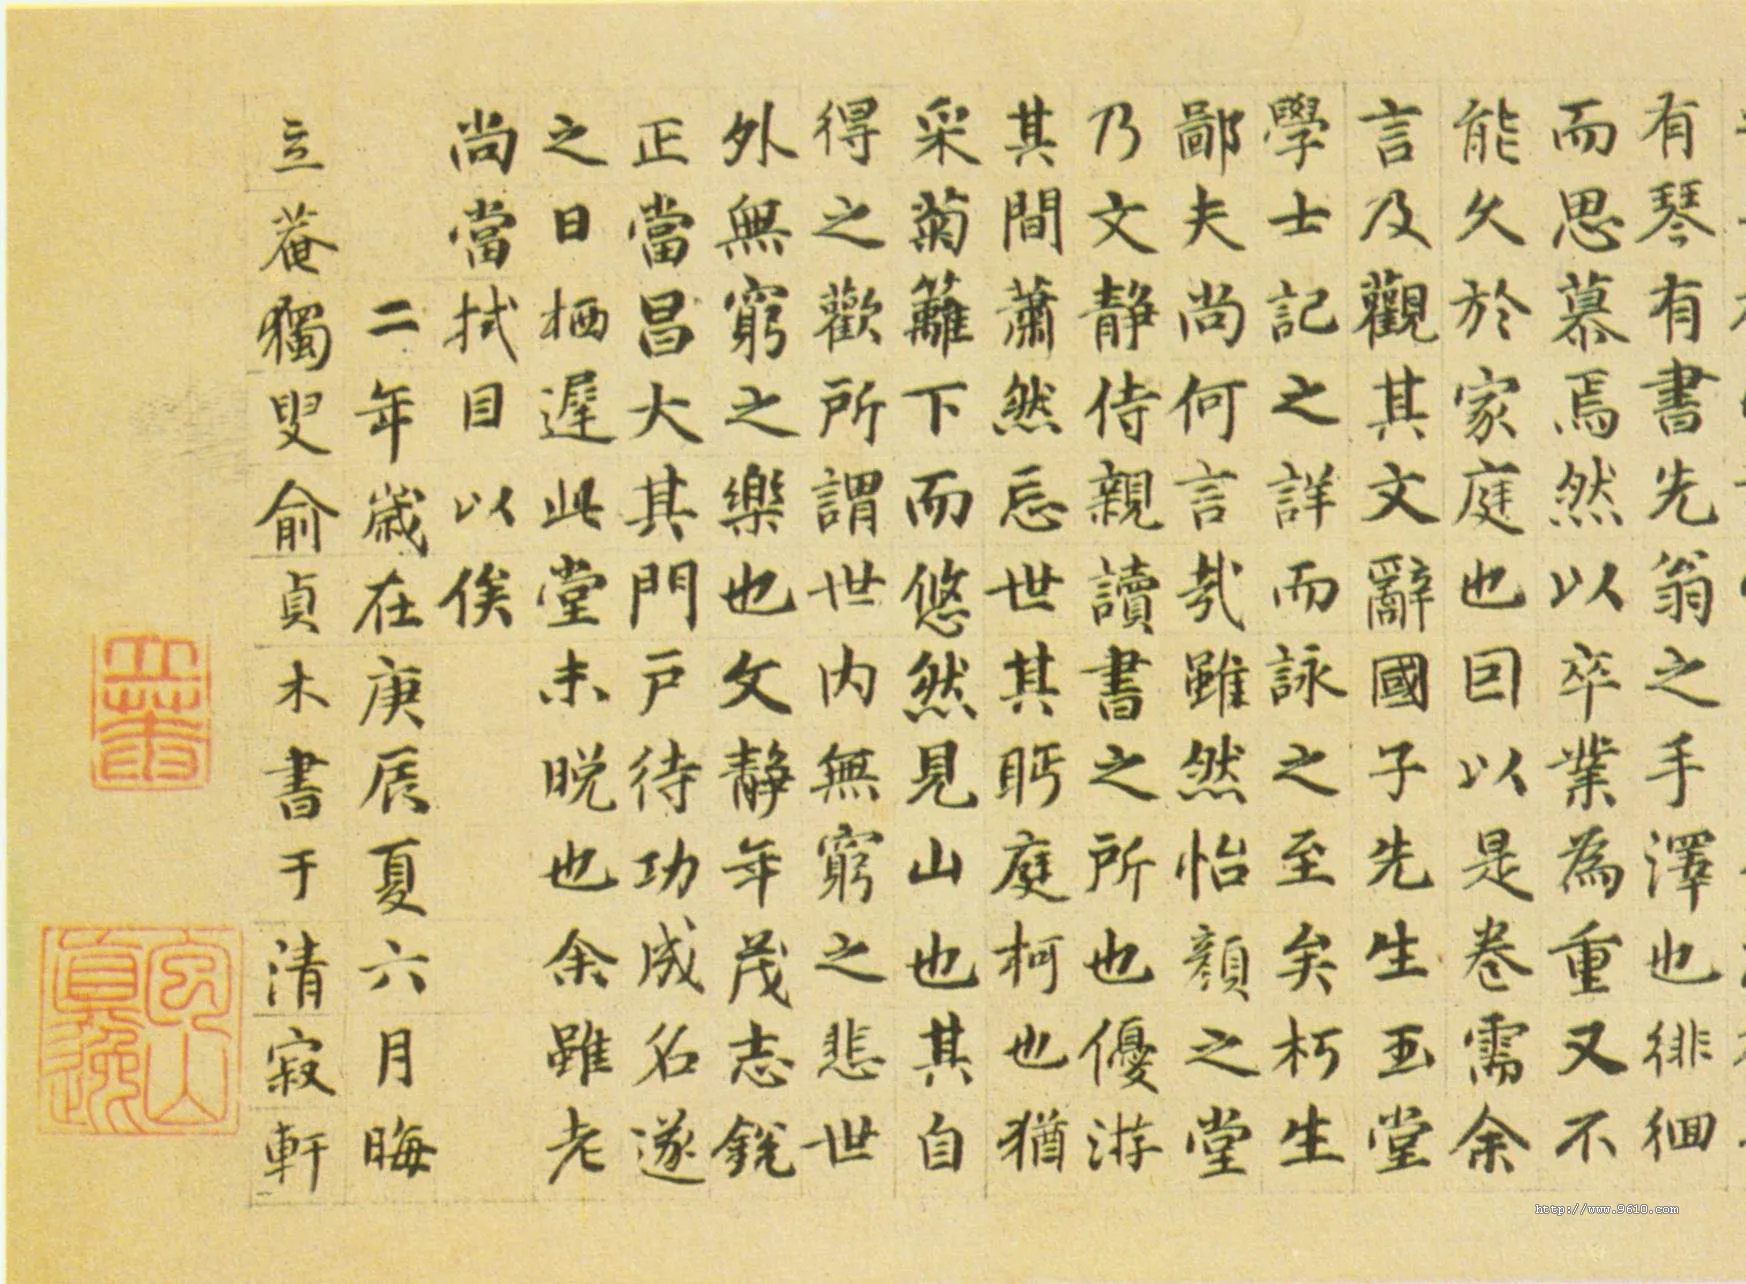 有琴有書先翁之手澤也徘徊
而思慕焉然以卒業為重又不
能久於家庭也囙以是卷需余
言及觀其文辭國子先生玉堂
學士記之詳而詠之至矣朽生
鄙夫尚何言㢤雖然怡顏之堂
乃文靜侍親讀書之所也優游
其間蕭然忘世其眄庭柯也猶
采菊籬下而悠然見山也其自
得之歡所謂世内無窮之悲世
外無窮之樂也文靜年茂志銳
正當昌大其門戶待功成名遂
之日栖遲此堂未晚也余雖老
尚當拭目以俟
二年歲在庚辰夏六月晦
立菴獨叟俞貞木書于清寂軒
http://www.9610.com